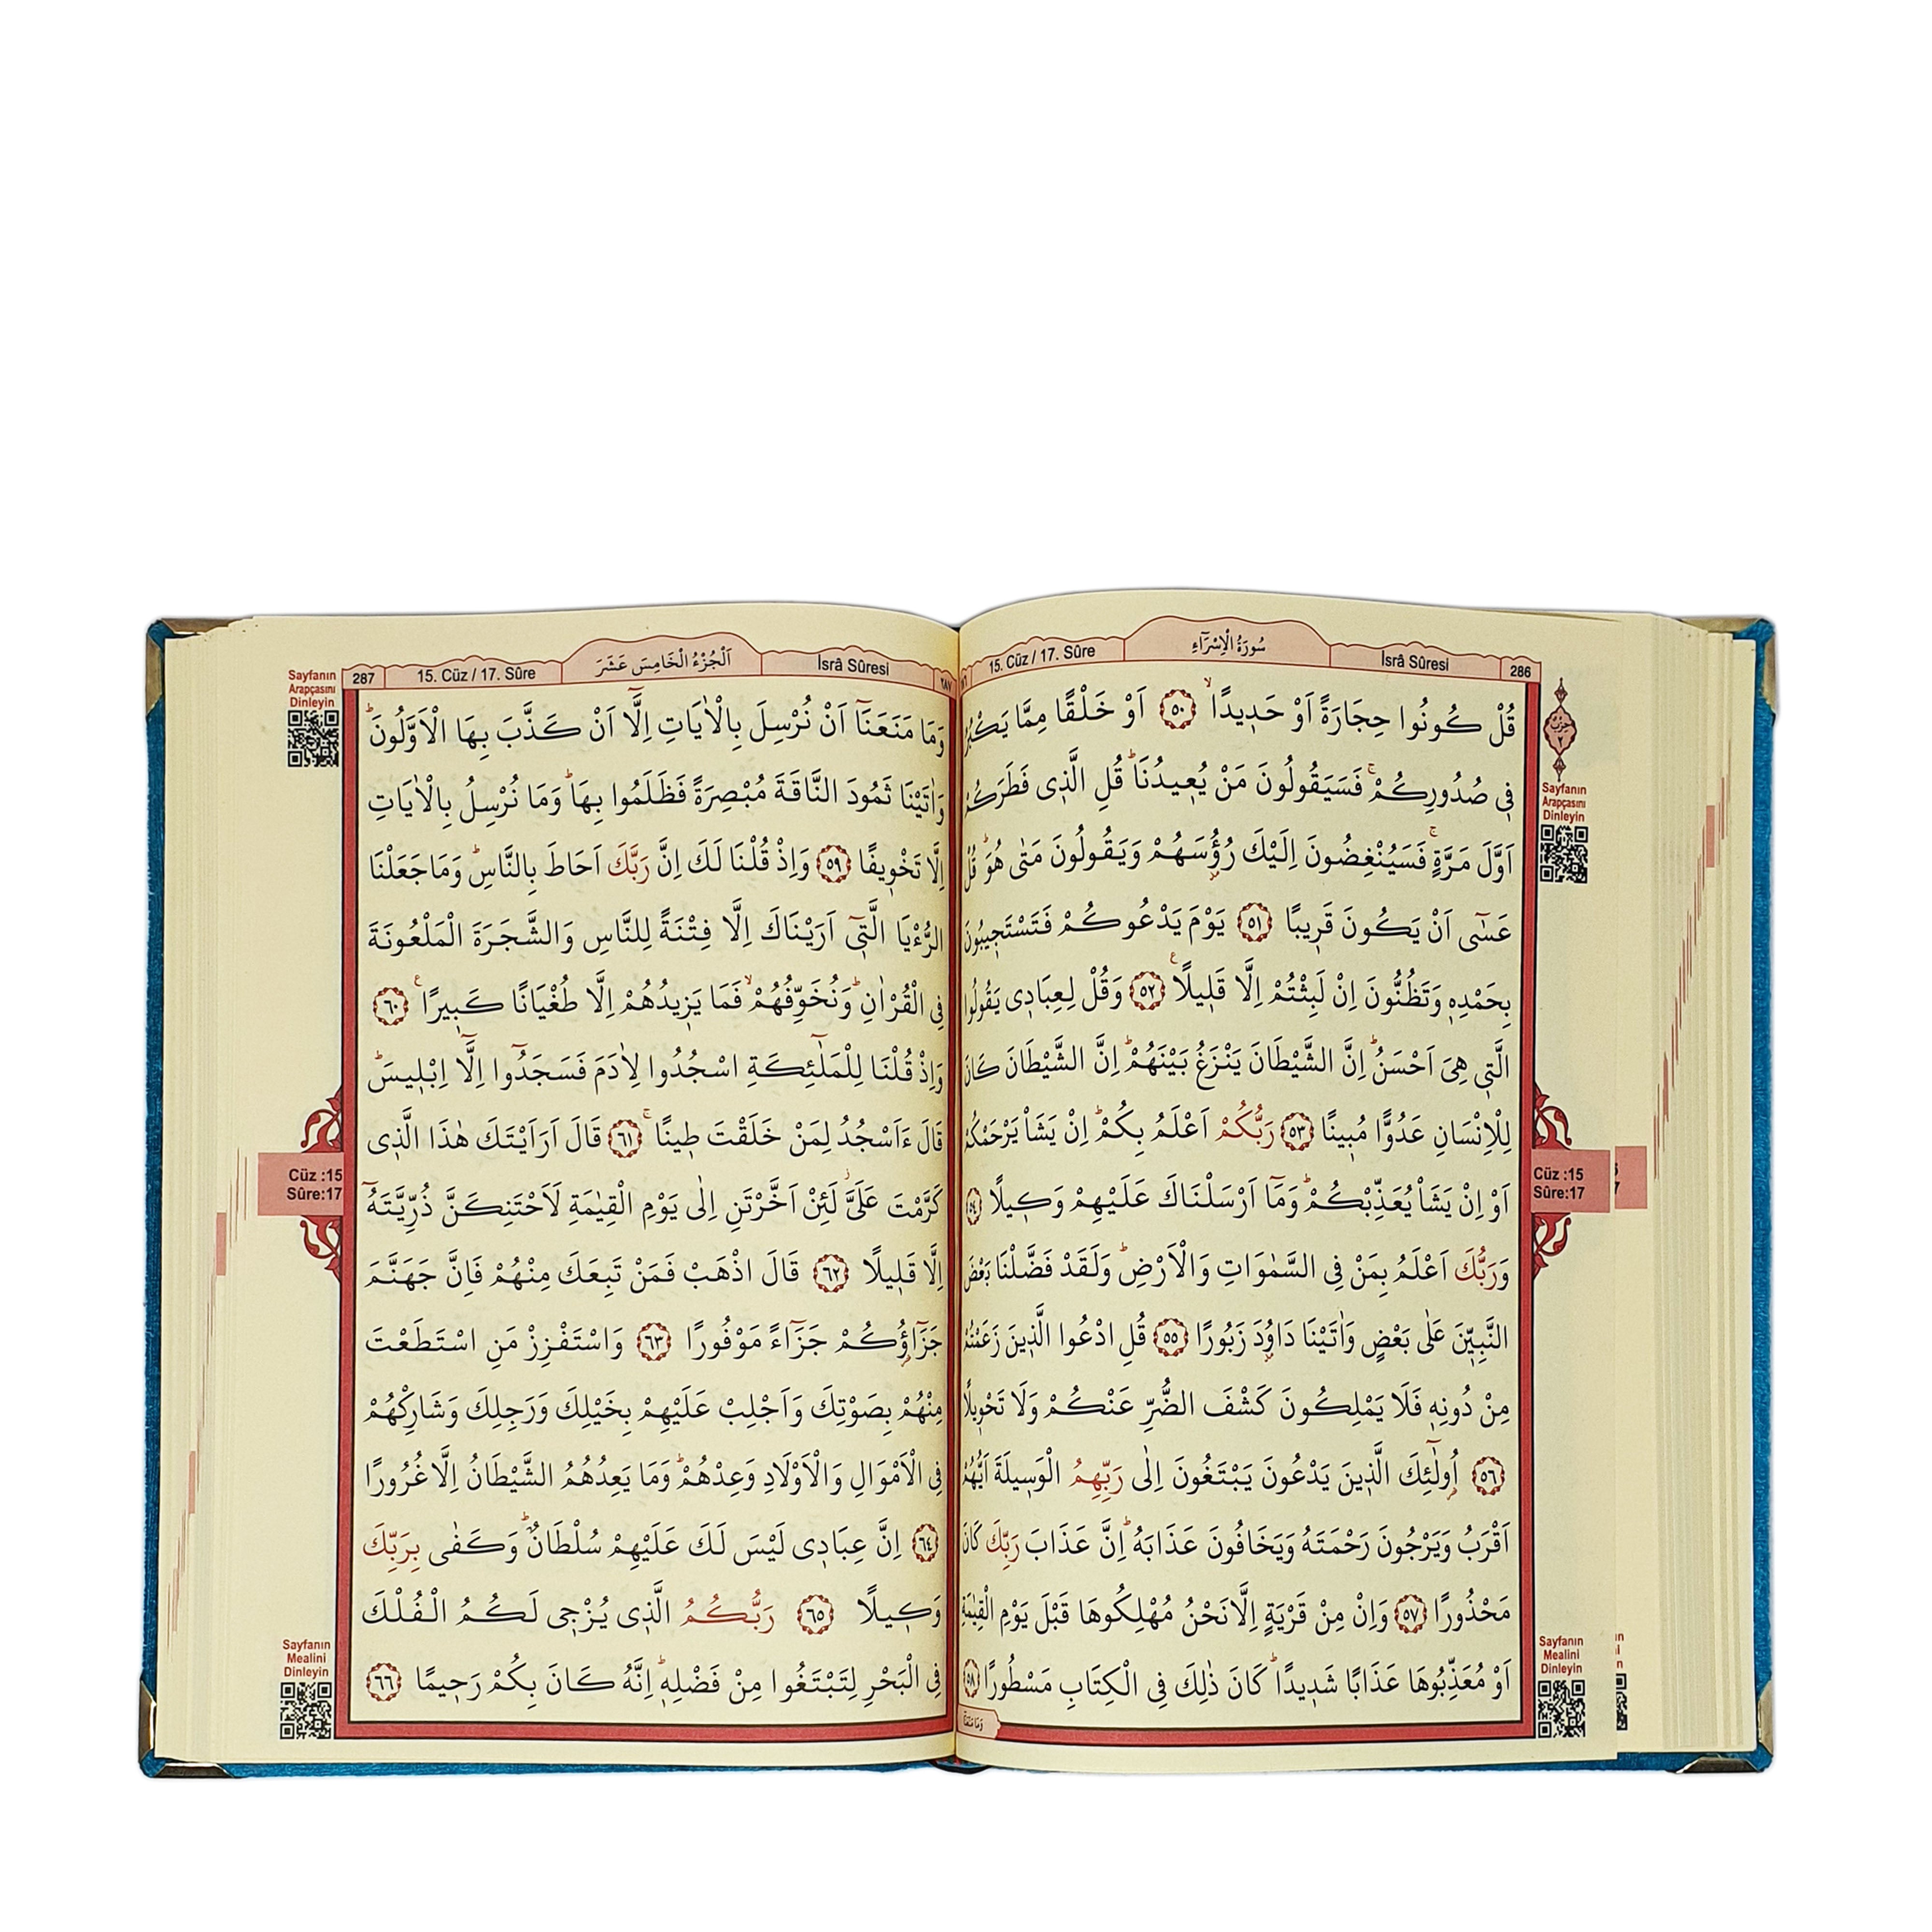 286
İsrâ Sûresi
سُورَةُ الْاِسْرَٓاءِ
15. Cüz / 17. Sûre
قُلْ كُونُوا حِجَارَةً اَوْ حَد۪يدًاۙ ﴿٥٠﴾ اَوْ خَلْقًا مِمَّا يَكْبُرُ
ف۪ي صُدُورِكُمْۚ فَسَيَقُولُونَ مَنْ يُع۪يدُنَاۜ قُلِ الَّذ۪ي فَطَرَكُمْ
اَوَّلَ مَرَّةٍۚ فَسَيُنْغِضُونَ اِلَيْكَ رُؤُ۫سَهُمْ وَيَقُولُونَ مَتٰى هُوَۜ قُلْ
عَسٰٓى اَنْ يَكُونَ قَر۪يبًا ﴿٥١﴾ يَوْمَ يَدْعُوكُمْ فَتَسْتَج۪يبُونَ
بِحَمْدِه۪ وَتَظُنُّونَ اِنْ لَبِثْتُمْ اِلَّا قَل۪يلًا۟ ﴿٥٢﴾ وَقُلْ لِعِبَاد۪ي يَقُولُوا
الَّت۪ي هِيَ اَحْسَنُۜ اِنَّ الشَّيْطَانَ يَنْزَغُ بَيْنَهُمْۜ اِنَّ الشَّيْطَانَ كَانَ
لِلْاِنْسَانِ عَدُوًّا مُب۪ينًا ﴿٥٣﴾ رَبُّكُمْ اَعْلَمُ بِكُمْۜ اِنْ يَشَأْ يَرْحَمْكُمْ
اَوْ اِنْ يَشَأْ يُعَذِّبْكُمْۜ وَمَٓا اَرْسَلْنَاكَ عَلَيْهِمْ وَك۪يلًا ﴿٥٤﴾
وَرَبُّكَ اَعْلَمُ بِمَنْ فِي السَّمٰوَاتِ وَالْاَرْضِۜ وَلَقَدْ فَضَّلْنَا بَعْضَ
النَّبِيّ۪نَ عَلٰى بَعْضٍ وَاٰتَيْنَا دَاوُ۫دَ زَبُورًا ﴿٥٥﴾ قُلِ ادْعُوا الَّذ۪ينَ زَعَمْتُمْ
مِنْ دُونِه۪ فَلَا يَمْلِكُونَ كَشْفَ الضُّرِّ عَنْكُمْ وَلَا تَحْو۪يلًا
﴿٥٦﴾ اُو۬لٰٓئِكَ الَّذ۪ينَ يَدْعُونَ يَبْتَغُونَ اِلٰى رَبِّهِمُ الْوَس۪يلَةَ اَيُّهُمْ
اَقْرَبُ وَيَرْجُونَ رَحْمَتَهُ وَيَخَافُونَ عَذَابَهُۜ اِنَّ عَذَابَ رَبِّكَ كَانَ
مَحْذُورًا ﴿٥٧﴾ وَاِنْ مِنْ قَرْيَةٍ اِلَّا نَحْنُ مُهْلِكُوهَا قَبْلَ يَوْمِ الْقِيٰمَةِ
اَوْ مُعَذِّبُوهَا عَذَابًا شَد۪يدًاۜ كَانَ ذٰلِكَ فِي الْكِتَابِ مَسْطُورًا ﴿٥٨﴾
وَمَا مَنَعَنَا
حِزْب
٢
Sayfanın
Arapçasını
Dinleyin
Cüz :15
Sûre:17
Sayfanın
Mealini
Dinleyin
٢٨٧
İsrâ Sûresi
اَلْجُزْءُ الْخَامِسَ عَشَرَ
15. Cüz / 17. Sûre
287
وَمَا مَنَعَنَٓا اَنْ نُرْسِلَ بِالْاٰيَاتِ اِلَّٓا اَنْ كَذَّبَ بِهَا الْاَوَّلُونَۜ
وَاٰتَيْنَا ثَمُودَ النَّاقَةَ مُبْصِرَةً فَظَلَمُوا بِهَاۜ وَمَا نُرْسِلُ بِالْاٰيَاتِ
اِلَّا تَخْو۪يفًا ﴿٥٩﴾ وَاِذْ قُلْنَا لَكَ اِنَّ رَبَّكَ اَحَاطَ بِالنَّاسِۜ وَمَا جَعَلْنَا
الرُّءْيَا الَّت۪ٓي اَرَيْنَاكَ اِلَّا فِتْنَةً لِلنَّاسِ وَالشَّجَرَةَ الْمَلْعُونَةَ
فِي الْقُرْاٰنِۜ وَنُخَوِّفُهُمْۙ فَمَا يَز۪يدُهُمْ اِلَّا طُغْيَانًا كَب۪يرًا۟ ﴿٦٠﴾
وَاِذْ قُلْنَا لِلْمَلٰٓئِكَةِ اسْجُدُوا لِاٰدَمَ فَسَجَدُٓوا اِلَّٓا اِبْل۪يسَۜ
قَالَ ءَاَسْجُدُ لِمَنْ خَلَقْتَ ط۪ينًاۚ ﴿٦١﴾ قَالَ اَرَاَيْتَكَ هٰذَا الَّذ۪ي
كَرَّمْتَ عَلَيَّۘ لَئِنْ اَخَّرْتَنِ اِلٰى يَوْمِ الْقِيٰمَةِ لَاَحْتَنِكَنَّ ذُرِّيَّتَهُٓ
اِلَّا قَل۪يلًا ﴿٦٢﴾ قَالَ اذْهَبْ فَمَنْ تَبِعَكَ مِنْهُمْ فَاِنَّ جَهَنَّمَ
جَزَٓاؤُ۬كُمْ جَزَٓاءً مَوْفُورًا ﴿٦٣﴾ وَاسْتَفْزِزْ مَنِ اسْتَطَعْتَ
مِنْهُمْ بِصَوْتِكَ وَاَجْلِبْ عَلَيْهِمْ بِخَيْلِكَ وَرَجِلِكَ وَشَارِكْهُمْ
فِي الْاَمْوَالِ وَالْاَوْلَادِ وَعِدْهُمْۜ وَمَا يَعِدُهُمُ الشَّيْطَانُ اِلَّا غُرُورًا
﴿٦٤﴾ اِنَّ عِبَاد۪ي لَيْسَ لَكَ عَلَيْهِمْ سُلْطَانٌۜ وَكَفٰى بِرَبِّكَ
وَك۪يلًا ﴿٦٥﴾ رَبُّكُمُ الَّذ۪ي يُزْج۪ي لَكُمُ الْفُلْكَ
فِي الْبَحْرِ لِتَبْتَغُوا مِنْ فَضْلِه۪ۜ اِنَّهُ كَانَ بِكُمْ رَح۪يمًا ﴿٦٦﴾
Sayfanın
Arapçasını
Dinleyin
Cüz :15
Sûre:17
Sayfanın
Mealini
Dinleyin